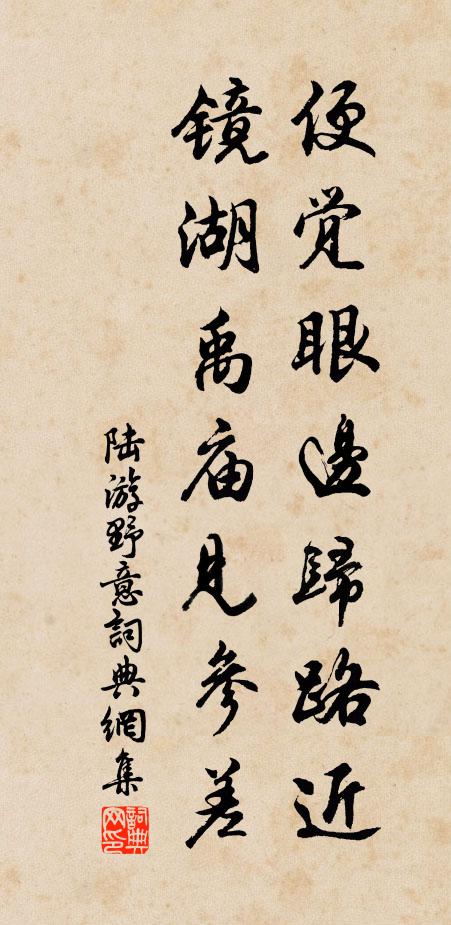 便觉眼邊歸路近
镜湖禹庙見參差
陆游野意詞典網集
詞典网印